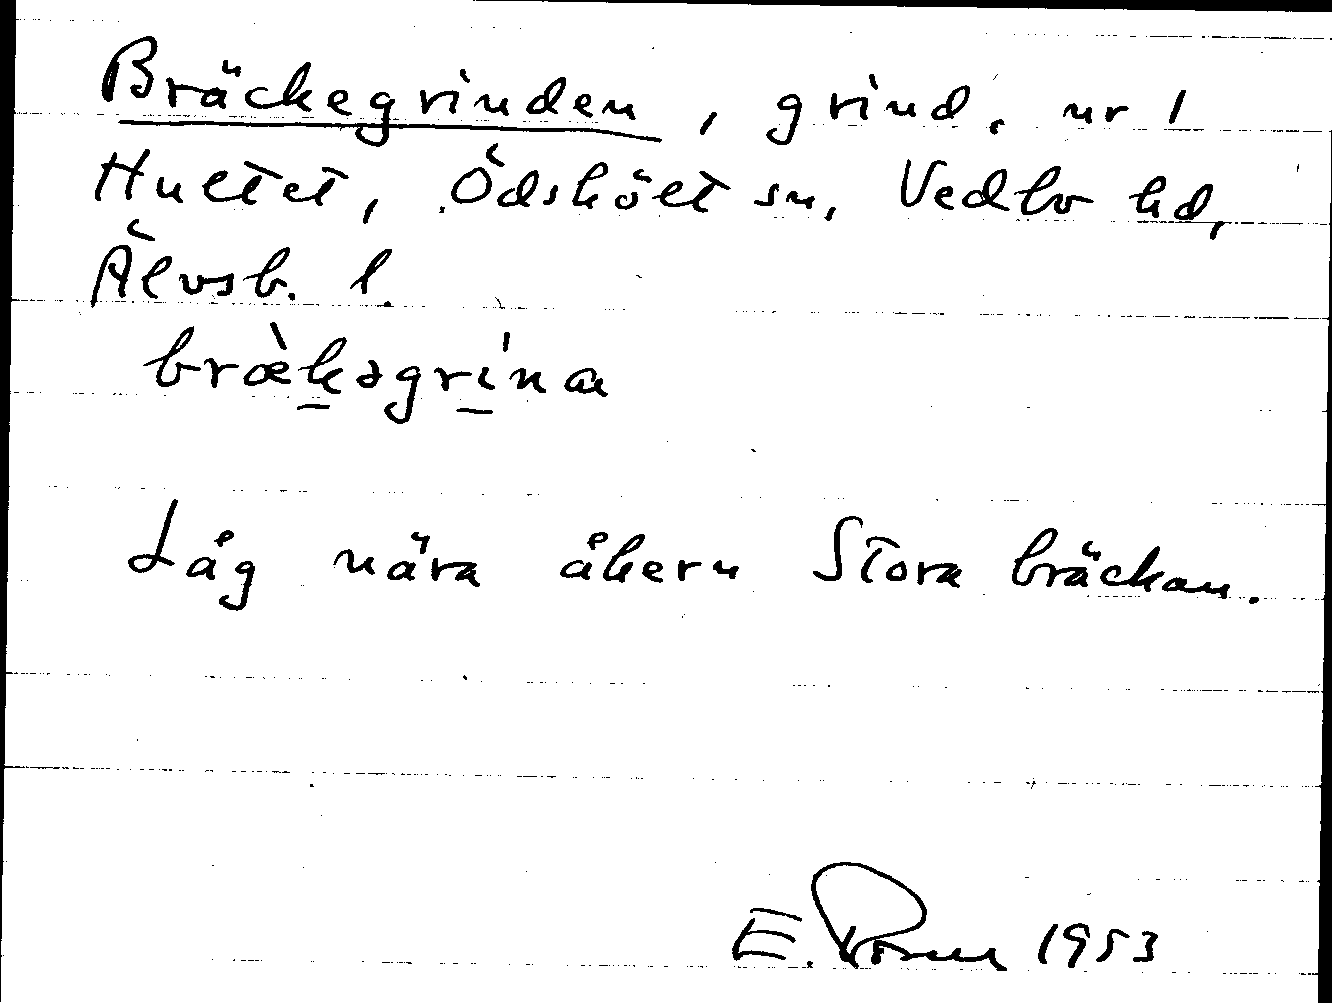 Bräckegrinden, grind, nr 1
Hultet, Ödskölt sn, Vedbo hd,
Älvsb. l.
bræ̀kəgrína
Låg nära åkern Stora bräckan.
E. 1953